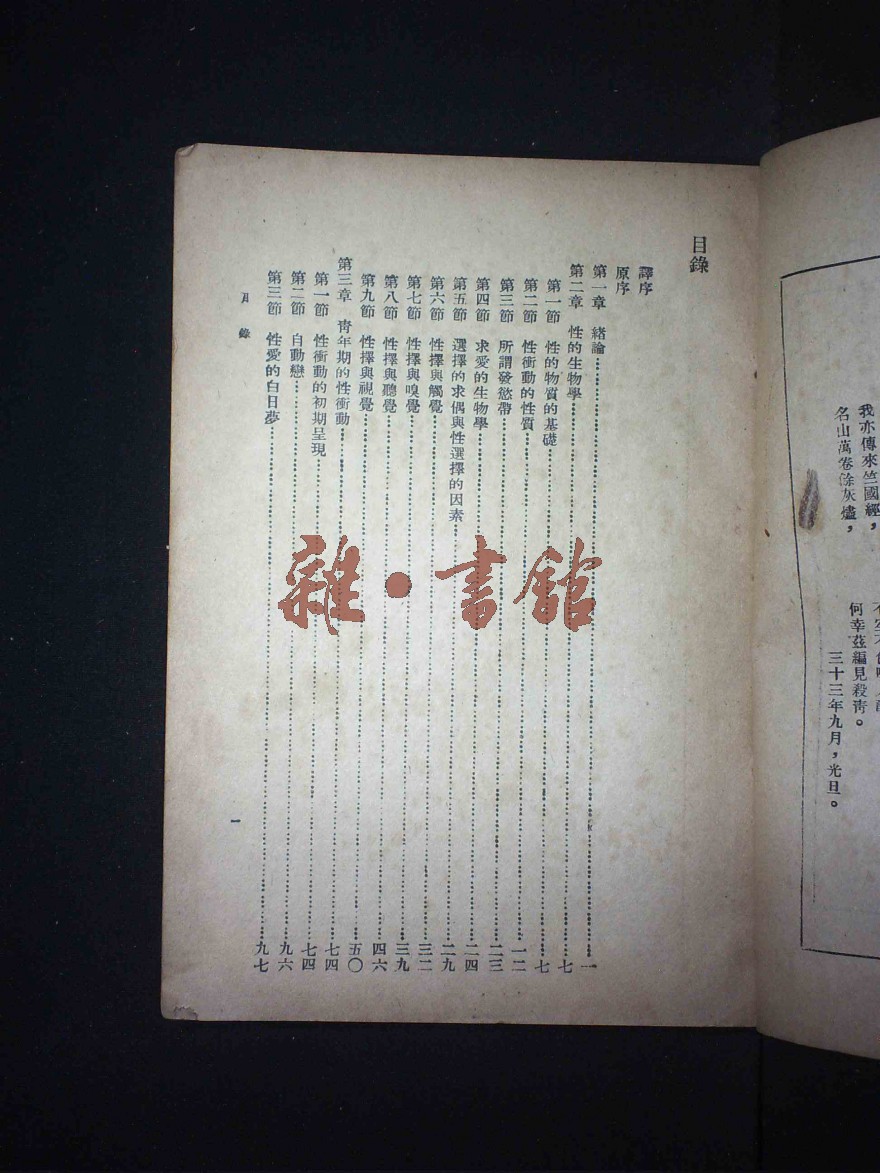 我亦傳來竺國經，
名山萬卷餘灰燼，
何幸茲編見殺靑。
三十三年九月，光旦。
目錄
譯序
原序
第一章 緒論……一
第二章 性的生物學……七
第一節 性的物質的基礎……七
第二節 性衝動的性質……一二
第三節 所謂發慾帶……二三
第四節 求愛的生物學……二四
第五節 選擇的求偶與性選擇的因素……二九
第六節 性擇與觸覺……三二
第七節 性擇與嗅覺……三九
第八節 性擇與聽覺……四六
第九節 性擇與視覺……五〇
第三章 靑年期的性衝動……七四
第一節 性衝動的初期呈現……七四
第二節 自動戀……九六
第三節 性愛的白日夢……九七
目錄
一
雜·書館